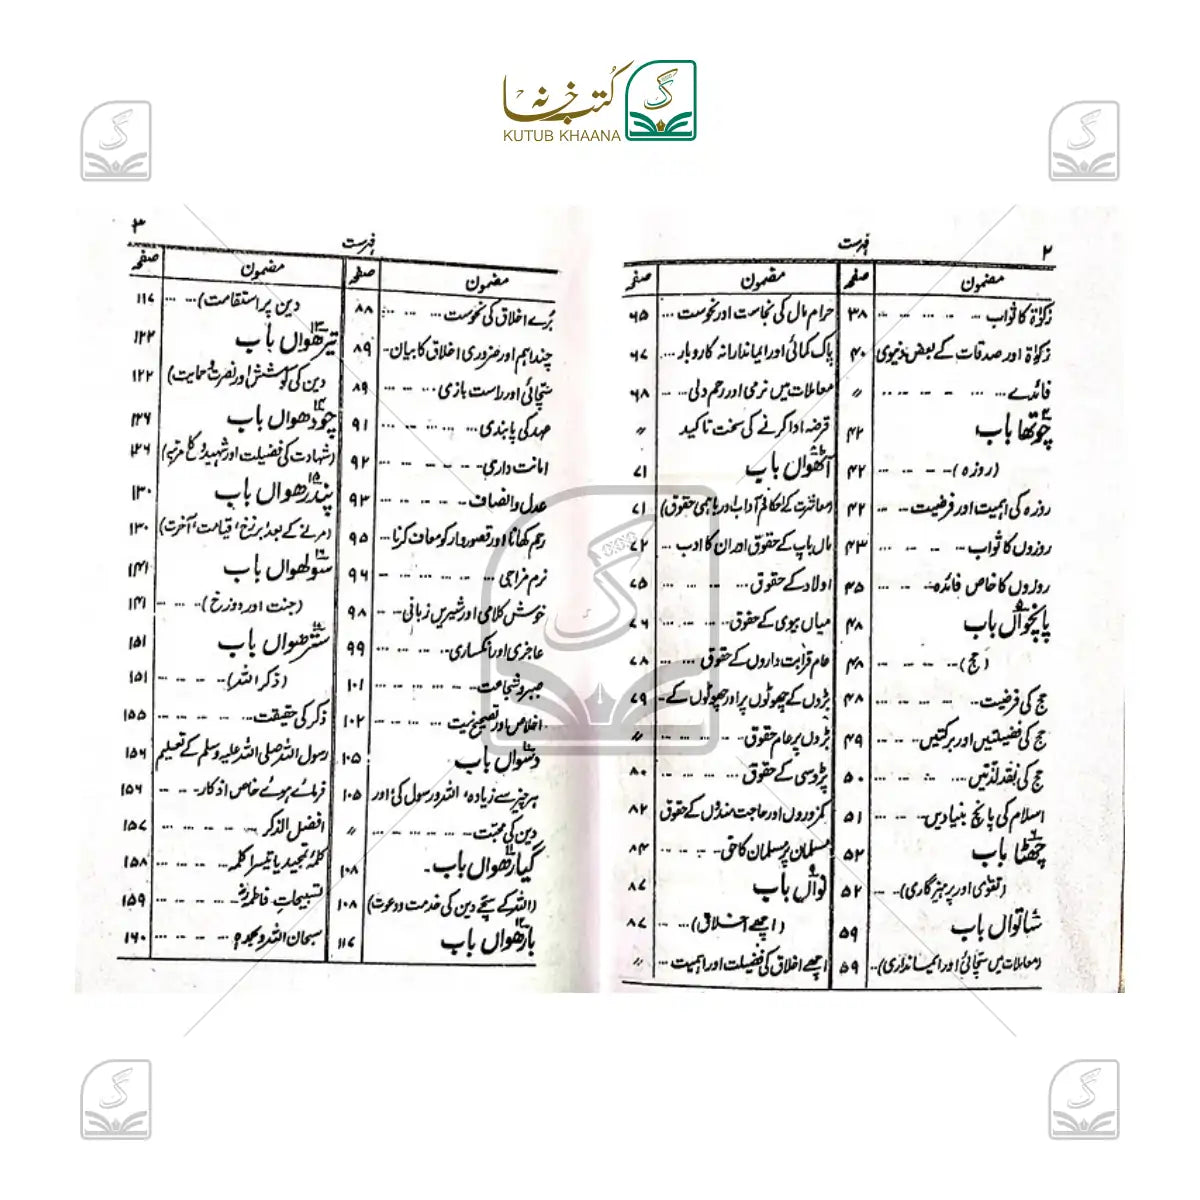 کتب خانہ
KUTUB KHAANA
۲
فہرست
مضمون صفحہ
زکوٰۃ کا ثواب ۳۸
زکوٰۃ اور صدقات کے بعض دنیوی ۴۰
فائدے 〃
چوتھا باب ۴۲
(روزہ) ۴۲
روزہ کی اہمیت اور فرضیت ۴۲
روزوں کا ثواب ۴۳
روزوں کا خاص فائدہ ۴۵
پانچواں باب ۴۸
(حج) ۴۸
حج کی فرضیت ۴۸
حج کی فضیلتیں اور برکتیں ۴۹
حج کی نقد لذتیں ۵۰
اسلام کی پانچ بنیادیں ۵۱
چھٹا باب ۵۲
(تقویٰ اور پرہیزگاری) ۵۲
ساتواں باب ۵۹
(معاملات میں سچائی اور ایمانداری) ۵۹
مضمون صفحہ
حرام مال کی نجاست اور نحوست ۶۵
پاک کمائی اور ایماندارانہ کاروبار ۶۷
معاملات میں نرمی اور رحم دلی ۶۸
قرضہ ادا کرنے کی سخت تاکید 〃
آٹھواں باب ۷۱
(معاشرت کے احکام آداب اور باہمی حقوق) ۷۱
ماں باپ کے حقوق اور ان کا ادب ۷۲
اولاد کے حقوق ۷۵
میاں بیوی کے حقوق ۷۶
عام قرابت داروں کے حقوق ۷۸
بڑوں کے چھوٹوں پر اور چھوٹوں کے ۷۹
بڑوں پر عام حقوق 〃
پڑوسی کے حقوق ۸۰
کمزوروں اور حاجت مندوں کے حقوق ۸۲
مسلمان پر مسلمان کا حق ۸۴
نواں باب ۸۷
(اچھے اخلاق) ۸۷
اچھے اخلاق کی فضیلت اور اہمیت 〃
۳
فہرست
مضمون صفحہ
بُرے اخلاق کی نحوست ۸۸
چند اہم اور ضروری اخلاق کا بیان ۸۹
سچائی اور راست بازی ۸۹
عہد کی پابندی ۹۱
امانت داری ۹۲
عدل و انصاف ۹۳
رحم کھانا اور قصوروار کو معاف کرنا ۹۵
نرم مزاجی ۹۶
خوش کلامی اور شیریں زبانی ۹۸
عاجزی اور انکساری ۹۹
صبر و شجاعت ۱۰۱
اخلاص اور تصحیح نیت ۱۰۲
دسواں باب ۱۰۵
ہر چیز سے زیادہ اللہ و رسول کی اور ۱۰۵
دین کی محبت 〃
گیارھواں باب ۱۰۸
(اللہ کے سچے دین کی خدمت و دعوت) ۱۰۸
بارھواں باب ۱۱۷
مضمون صفحہ
دین پر استقامت) ۱۱۷
تیرھواں باب ۱۲۲
دین کی کوشش اور نصرت و حمایت) ۱۲۲
چودھواں باب ۱۲۶
(شہادت کی فضیلت اور شہیدوں کا مرتبہ) ۱۲۶
پندرھواں باب ۱۳۰
(مرنے کے بعد برزخ، قیامت، آخرت) ۱۳۰
سولھواں باب ۱۴۱
(جنت اور دوزخ) ۱۴۱
سترھواں باب ۱۵۱
(ذکر اللہ) ۱۵۱
ذکر کی حقیقت ۱۵۵
رسول اللہ صلی اللہ علیہ وسلم کے تعلیم ۱۵۶
فرمائے ہوئے خاص اذکار ۱۵۶
افضل الذکر ۱۵۷
کلمۂ تمجید یا تیسرا کلمہ ۱۵۸
تسبیحات فاطمہؓ ۱۵۹
سبحان اللہ وبحمدہ ۱۶۰